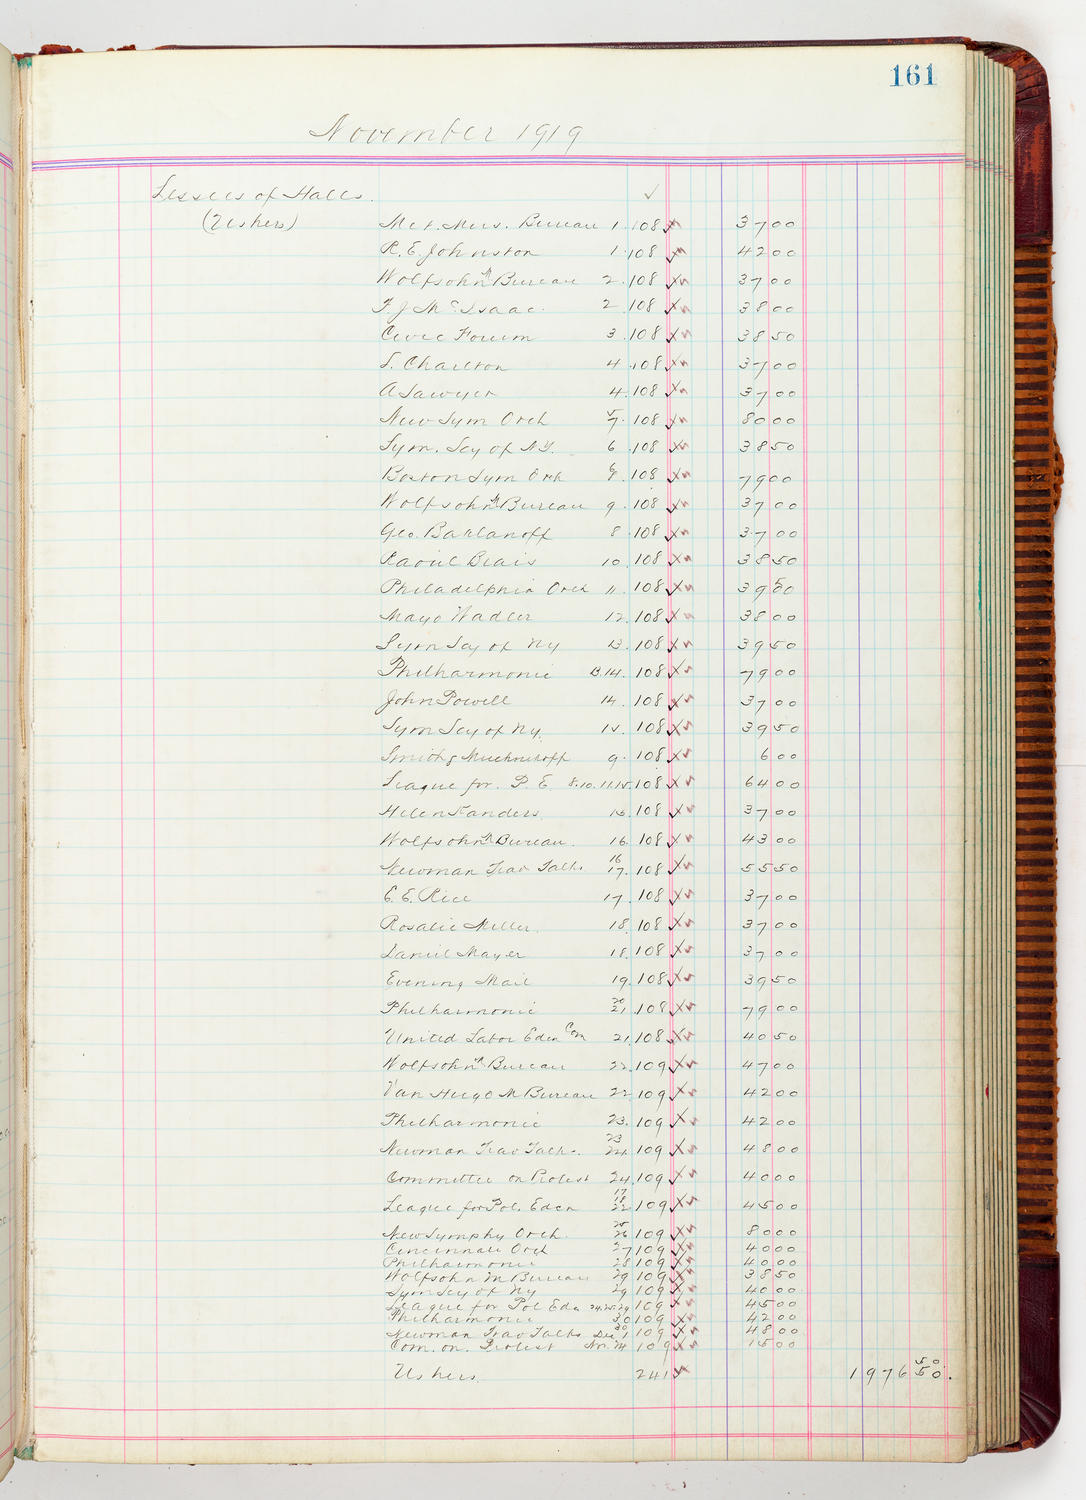 161
November 1919
Lessees of Halls. ✓
(Ushers) Met. Mus. Bureau 1. 108 37 00
R. E. Johnston 1. 108 42 00
Wolfsohn M Bureau 2. 108 37 00
F J McIsaac. 2 108 38 00
Civic Forum 3. 108 38 50
L. Charlton 4. 108 37 00
A Sawyer 4. 108 37 00
New Sym Orch 5 7. 108 80 00
Sym. Scy of N.Y. 6. 108 38 50
Boston Sym Orch 108 79 00
Wolfsohn M Bureau 9. 108 37 00
Geo. Barlanoff 8. 108 37 00
Raoul Biais 10. 108 38 50
Philadelphia Orch 11. 108 39 50
Mayo Wadler 12. 108 38 00
Sym Scy of Ny 13. 108 39 50
Philharmonic 13.14. 108 79 00
John Powell 14. 108 37 00
Sym Scy of Ny. 15. 108 39 50
Smith & 9. 108 6 00
League for. P. E. 8.10.11.15. 108 64 00
Helen Sanders 15. 108 37 00
Wolfsohn M Bureau. 16. 108 43 00
Newman Trav Talks 16 17. 108 55 50
E. E. Rice 17. 108 37 00
Rosalie Miller. 18. 108 37 00
Daniel Mayer 18. 108 37 00
Evening Mail 19. 108 39 50
Philharmonic 20 21. 108 79 00
United Labor Edcn Com 21. 108 40 50
Wolfsohn M Bureau 22. 109 47 00
Van Hugo M Bureau 22 109 42 00
Philharmonic 23. 109 42 00
Newman Trav Talks. 23 24. 109 48 00
Committee on Protest 24. 109 40 00
League for Pol. Edcn 17 18 22 109 45 00
New Symphy Orch. 25 26 109 80 00
Cincinnati Orch 27 109 40 00
Philharmonic 28 109 40 00
Wolfsohn M Bureau 29 109 38 50
Sym Scy of Ny 29 109 40 00
League for Pol Edn 24.25.29 109 45 00
Philharmonic 30 109 42 00
Newman Trav Talks 30 Dec 1 109 48 00
Com. on. Protest Nov. 24 109 15 00
Ushers. 241 1976 50.